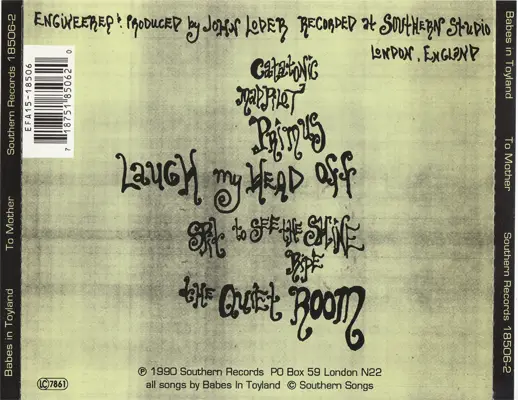 ENGINEERED & PRODUCED by JOHN LODER RECORDED at SOUTHERN STUDIO
LONDON, ENGLAND
CATATONIC
MAD PILOT
PRIMUS
LAUGH my HEAD OFF
SPIT to SEE the SHINE
RIPE
the QUIET ROOM
℗ 1990 Southern Records PO Box 59 London N22
all songs by Babes In Toyland © Southern Songs
LC 7861
EFA15-18506
7 18751 85062 0
Babes in Toyland To Mother Southern Records 18506-2
Babes in Toyland To Mother Southern Records 18506-2